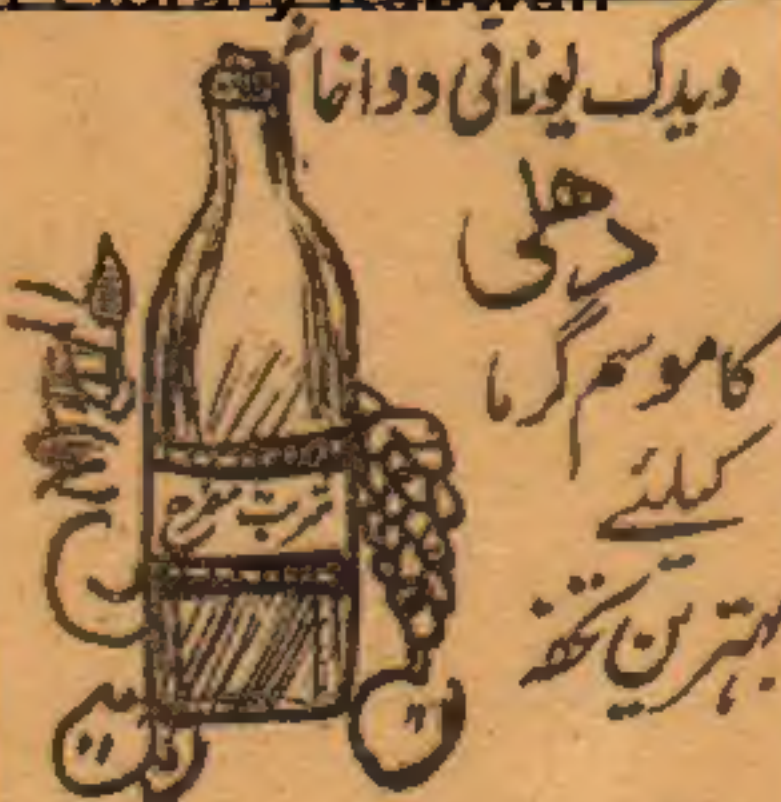 ویدک یونانی دواخانہ
دھلی
کا موسم گرما
کیلئے
بہترین تحفہ
شربت مفرح